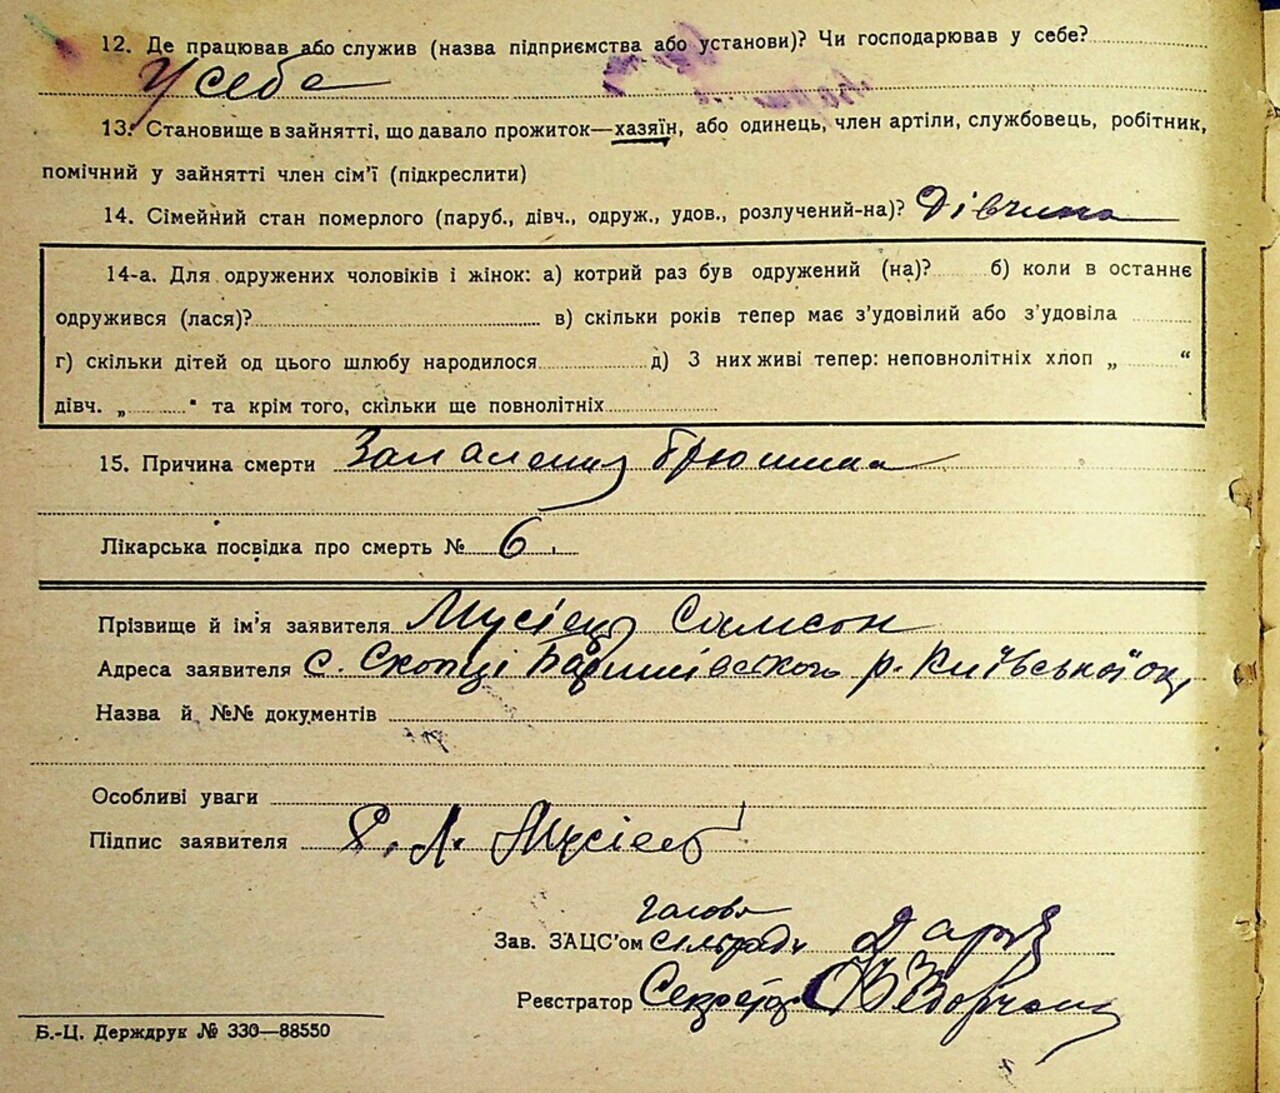 12. Де працював або служив (назва підприємства або установи)? Чи господарював у себе?
У себе
13. Становище в зайнятті, що давало прожиток—хазяїн, або одинець, член артіли, службовець, робітник,
помічний у зайнятті член сім'ї (підкреслити)
14. Сімейний стан померлого (паруб., дівч., одруж., удов., розлучений-на)? Дівчина
14-а. Для одружених чоловіків і жінок: а) котрий раз був одружений (на)? б) коли в останнє
одружився (лася)? в) скільки років тепер має з'удовілий або з'удовіла
г) скільки дітей од цього шлюбу народилося д) З них живі тепер: неповнолітніх хлоп „ “
дівч. „ " та крім того, скільки ще повнолітніх
15. Причина смерти Запаления брюшины
Лікарська посвідка про смерть № 6.
Прізвище й ім'я заявителя Мусієць Самсон
Адреса заявителя с. Скопці Баришівського р. Київської ок
Назва й №№ документів
Особливі уваги
Підпис заявителя Мусієць
Голова
Зав. ЗАЦС'ом сільради
Реєстратор Секретар
Б.-Ц. Держдрук № 330—88550